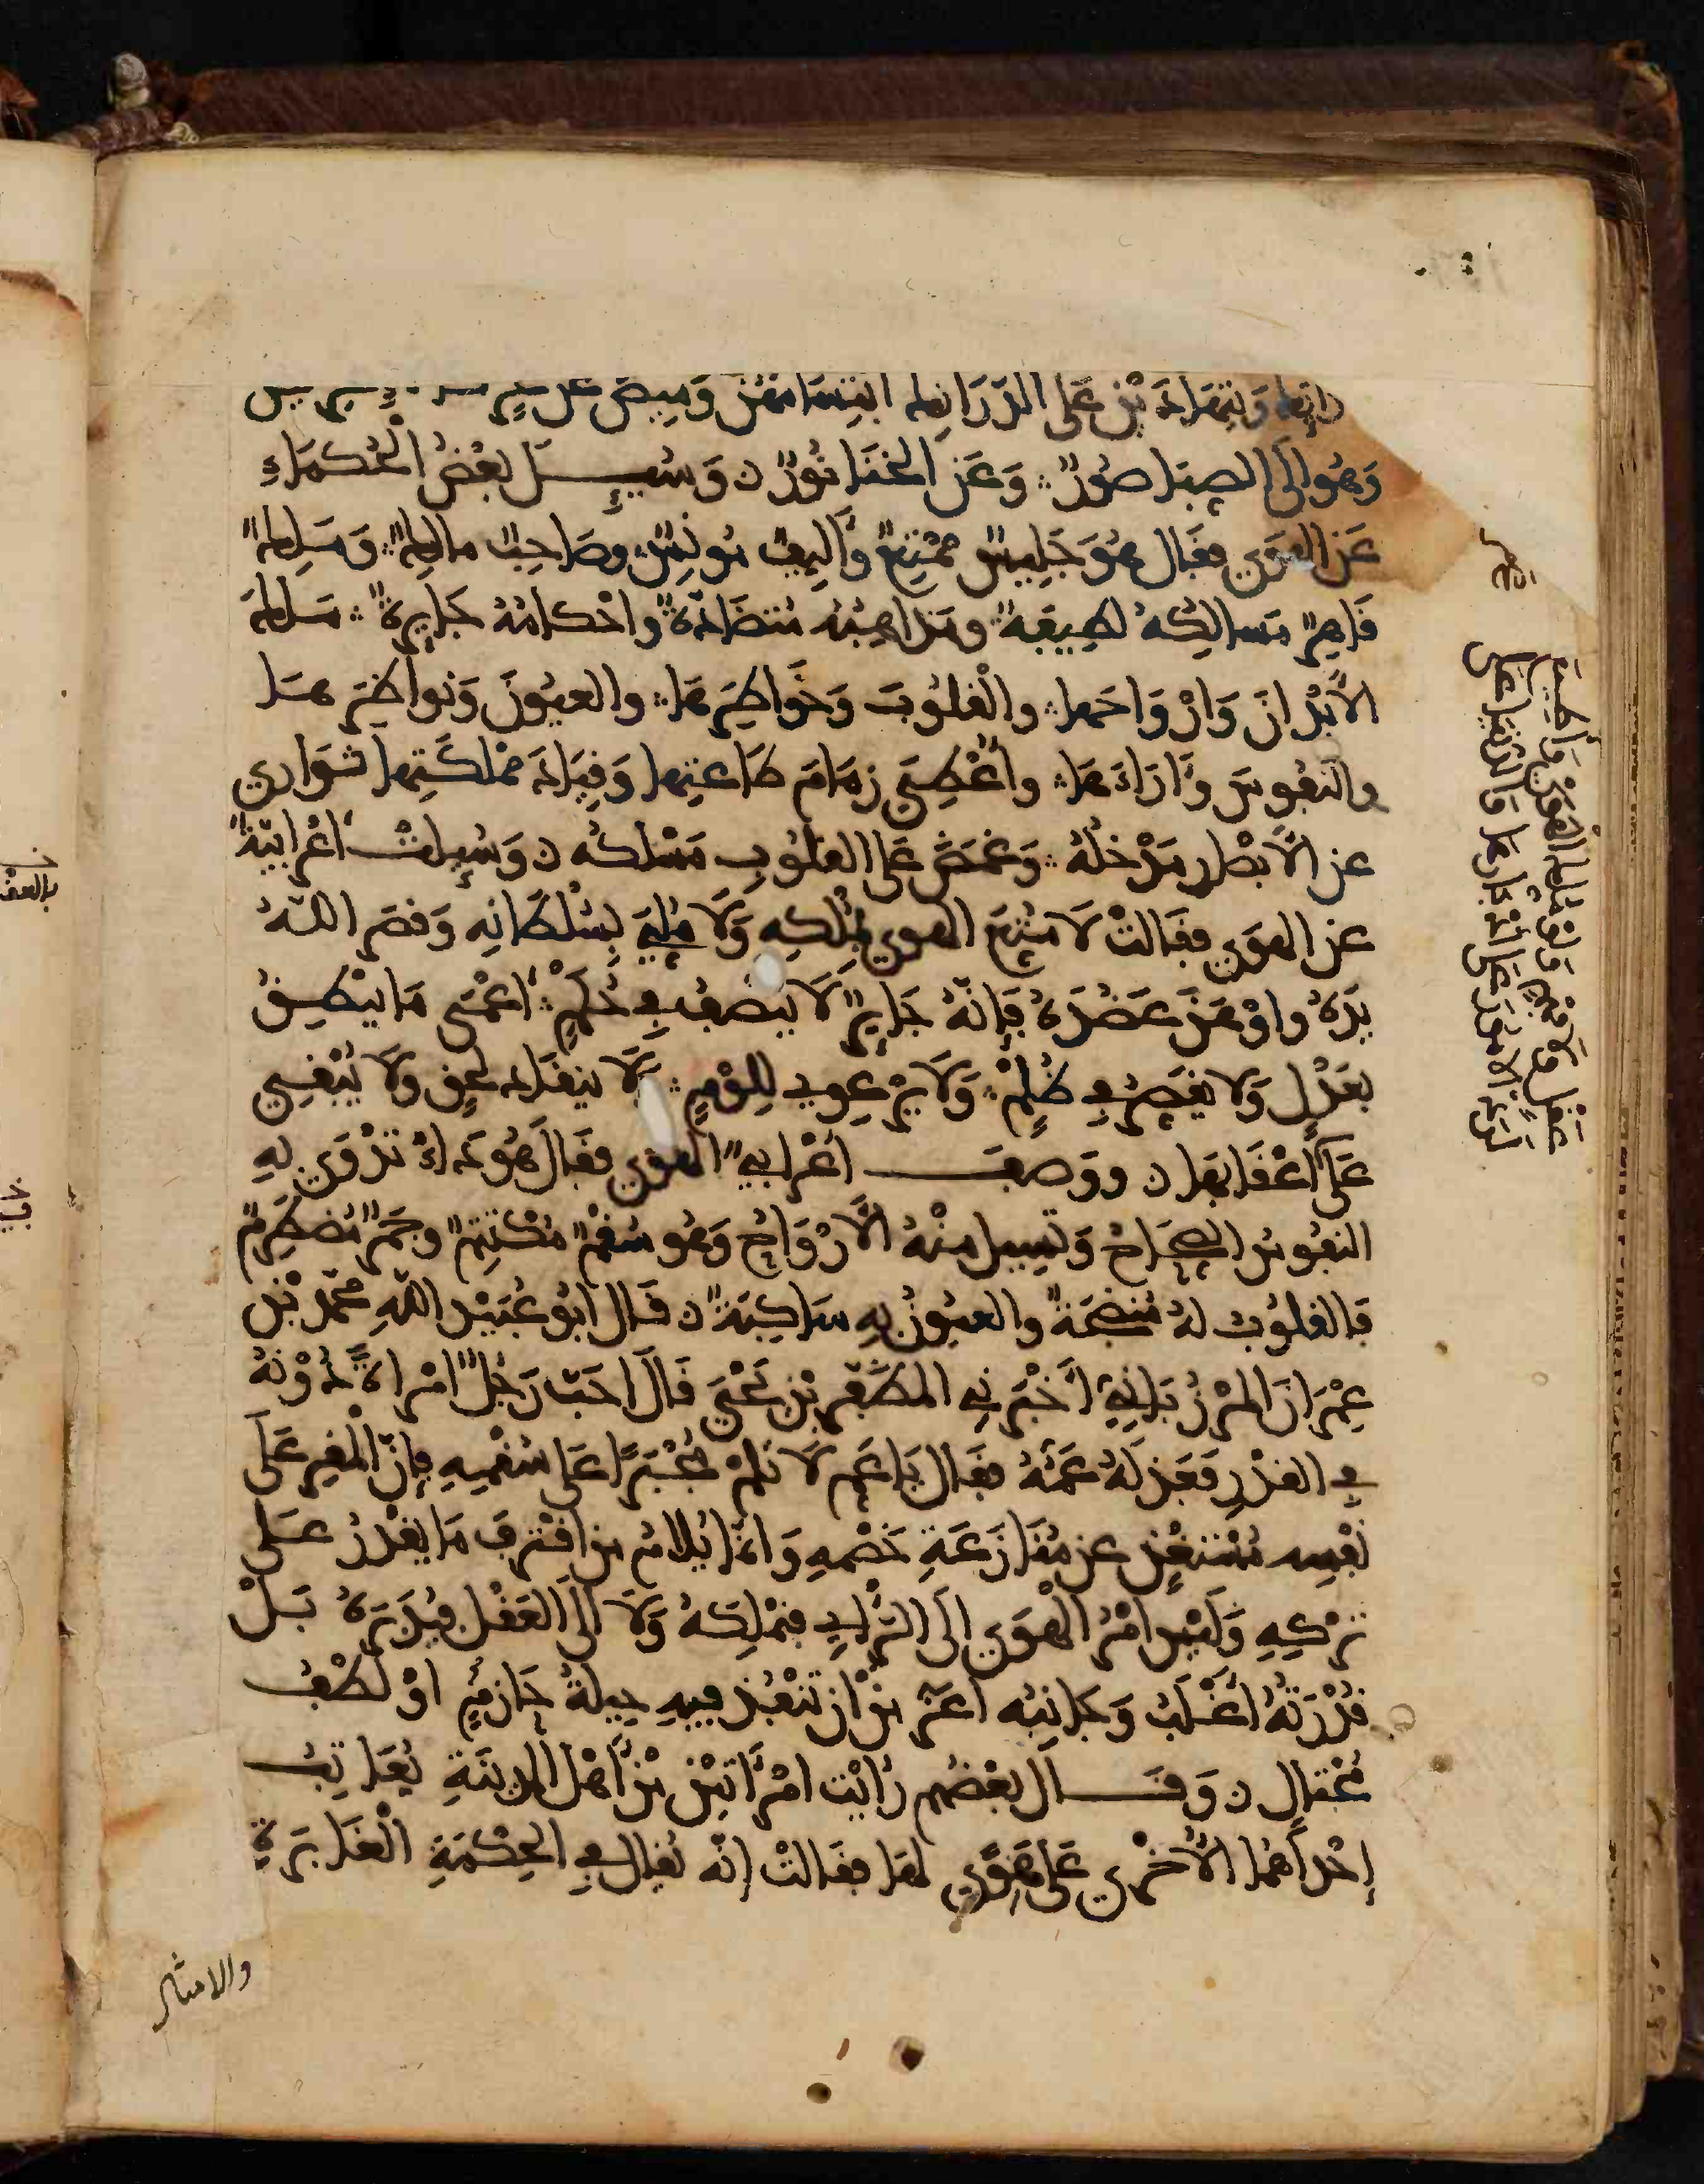 وَيَتَهَادَيْنَ عَلَى الدَّرَانِكِ ابْتِسَامُهُنَّ وَمِيضٌ عَن
وَهُوَ إلَى الصِبَا صُورٌ وَعَن الخَنَا نُورٌ وَسُئِلَ بَعْضُ الْحُكَمَاءِ
عَن الهَوَى فقَالَ هُوَ جَلِيسٌ مُمْتِعٌ وَأَلِيفٌ مُونِسٌ وصَاحِبٌ مالِكٌ وَمَلِكٌ
قَاهِرٌ مَسَالِكُهُ لطِيفَةٌ ومَذاهِبُهُ مُتضَادَّةٌ وأحْكامُهُ جَايِرةٌ مَلكَ
الأَبْدانَ وَأرْوَاحَهَا والْقلُوبَ وَخَوَاطِرَهَا والعيُونَ وَنواظِرَهَا
والنفُوسَ وَآرَاءَهَا وأُعْطِيَ زِمَامَ طَاعَتِهَا وَقِيَادَ مَمْلكَتِهَا تَوَارَى
عن الأَبْصَارِ مَدْخلُهُ وَغَمَضَ عَلى القلُوبِ مَسْلكُه وَسُئِلَتْ أعْرَابِيَّةٌ
عن الهوَى فقَالتْ لاَ مُتِّعَ الهوى بمُلكِهِ وَلاَ مُلِّيَ بِسُلْطَانِهِ وَقبَضَ اللَّهُ
يدَهُ وأوْهَنَ عَضُدَهُ فَإنَّهُ جَايِرٌ لاَ يُنْصِفُ في حُكمٍ أعْمَى مَا يَنْطِقُ
بعَدْلٍ وَلاَ يُقَصِّرُ في ظُلمٍ وَلاَ يَرْعَوِي لِلَوْمٍ وَلاَ ينقَادُ لحَقٍّ وَلاَ يُبْقِي
عَلَى
أعْقَابهَا ووَصفَ أعْرابيٌّ الهوَى فقَالَ هُوَ دَاءٌ تَدْوَى بِهِ
النفُوسُ الصِّحَاحُ وَتسِيلُ مِنْهُ الأَرْوَاحُ وَهُوَ سُقْمٌ مُكْتَتِمٌ وجَمْرٌ مُضطَرِمٌ
فَالقلُوبُ لهُ مُنضَجَةٌ والعيُونُ بِهِ سَاكِبَةٌ قَالَ أبُو عُبَيْدِ اللَّهِ مُحَمَّد بْن
عِمْرَانَ المَرْزُبَانِيُّ أَخْبَرَنِي المُظَفَّر بْن يَحْيَى قَالَ أحَبَّ رَجُلٌ امْرأةً دُونَهُ
في القَدْرِ فَعَذَلهُ عَمُّهُ فقَالَ يَا عَمِّ لاَ تَلُمْ مُجْبَرًا عَلى سُقْمِهِ فإنَّ الْمُقِرَّ عَلَى
نَفْسِهِ مُسْتَغْنٍ عن مُنَازَعَةِ خَصْمِهِ وَإنَّمَا يُلَامُ مَن اقْتَرفَ مَا يَقْدِرُ عَلَى
تَرْكِهِ وَلَيْسَ امْرُ الْهَوَى إلَى الرَّأيِ فيَمْلِكَهُ وَلاَ إلَى العَقْلِ فيُدَبِّرَهُ بَلْ
قُدْرَتُهُ أغْلَبُ وَجَانِبُه أعَزُّ مِنْ أنْ تَنْفُذَ فِيهِ حِيلةُ حَازِمٍ أوْ لُطْفُ
مُحْتَالٍ وَقَال بعْضُهُم رَأيْت امْرَأتَيْن مِنْ أَهْلِ الْمَدِينَةِ تُعَاتِبُ
إحْدَاهُما الأُخْرى عَلَى هَوًى لهَا فقَالتْ إنّه يُقال في الحِكْمَةِ الْغَابِرَةِ
والامثال